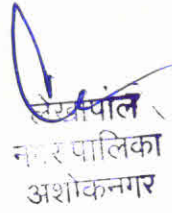 लेखापाल
नगर पालिका
अशोकनगर